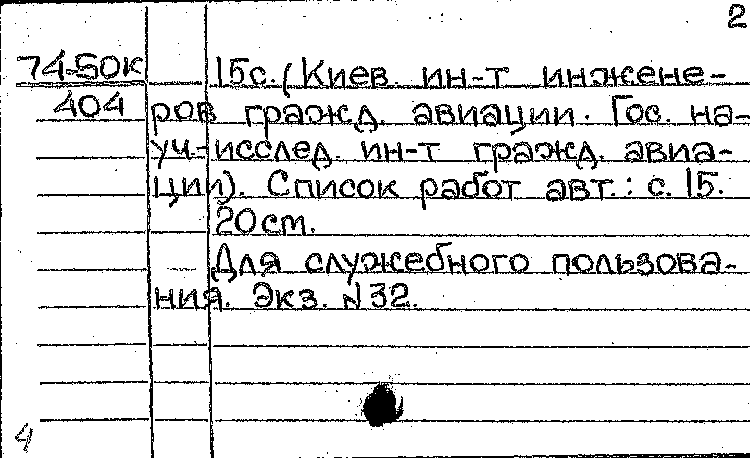 2
74-50к 15с. (Киев. ин-т инжене-
404 ров гражд. авиации. Гос. на-
уч.-исслед. ин-т гражд. авиа-
ции). Список работ авт.: с. 15.
20 см.
Для служебного пользова-
ния. Экз. N 32.
4